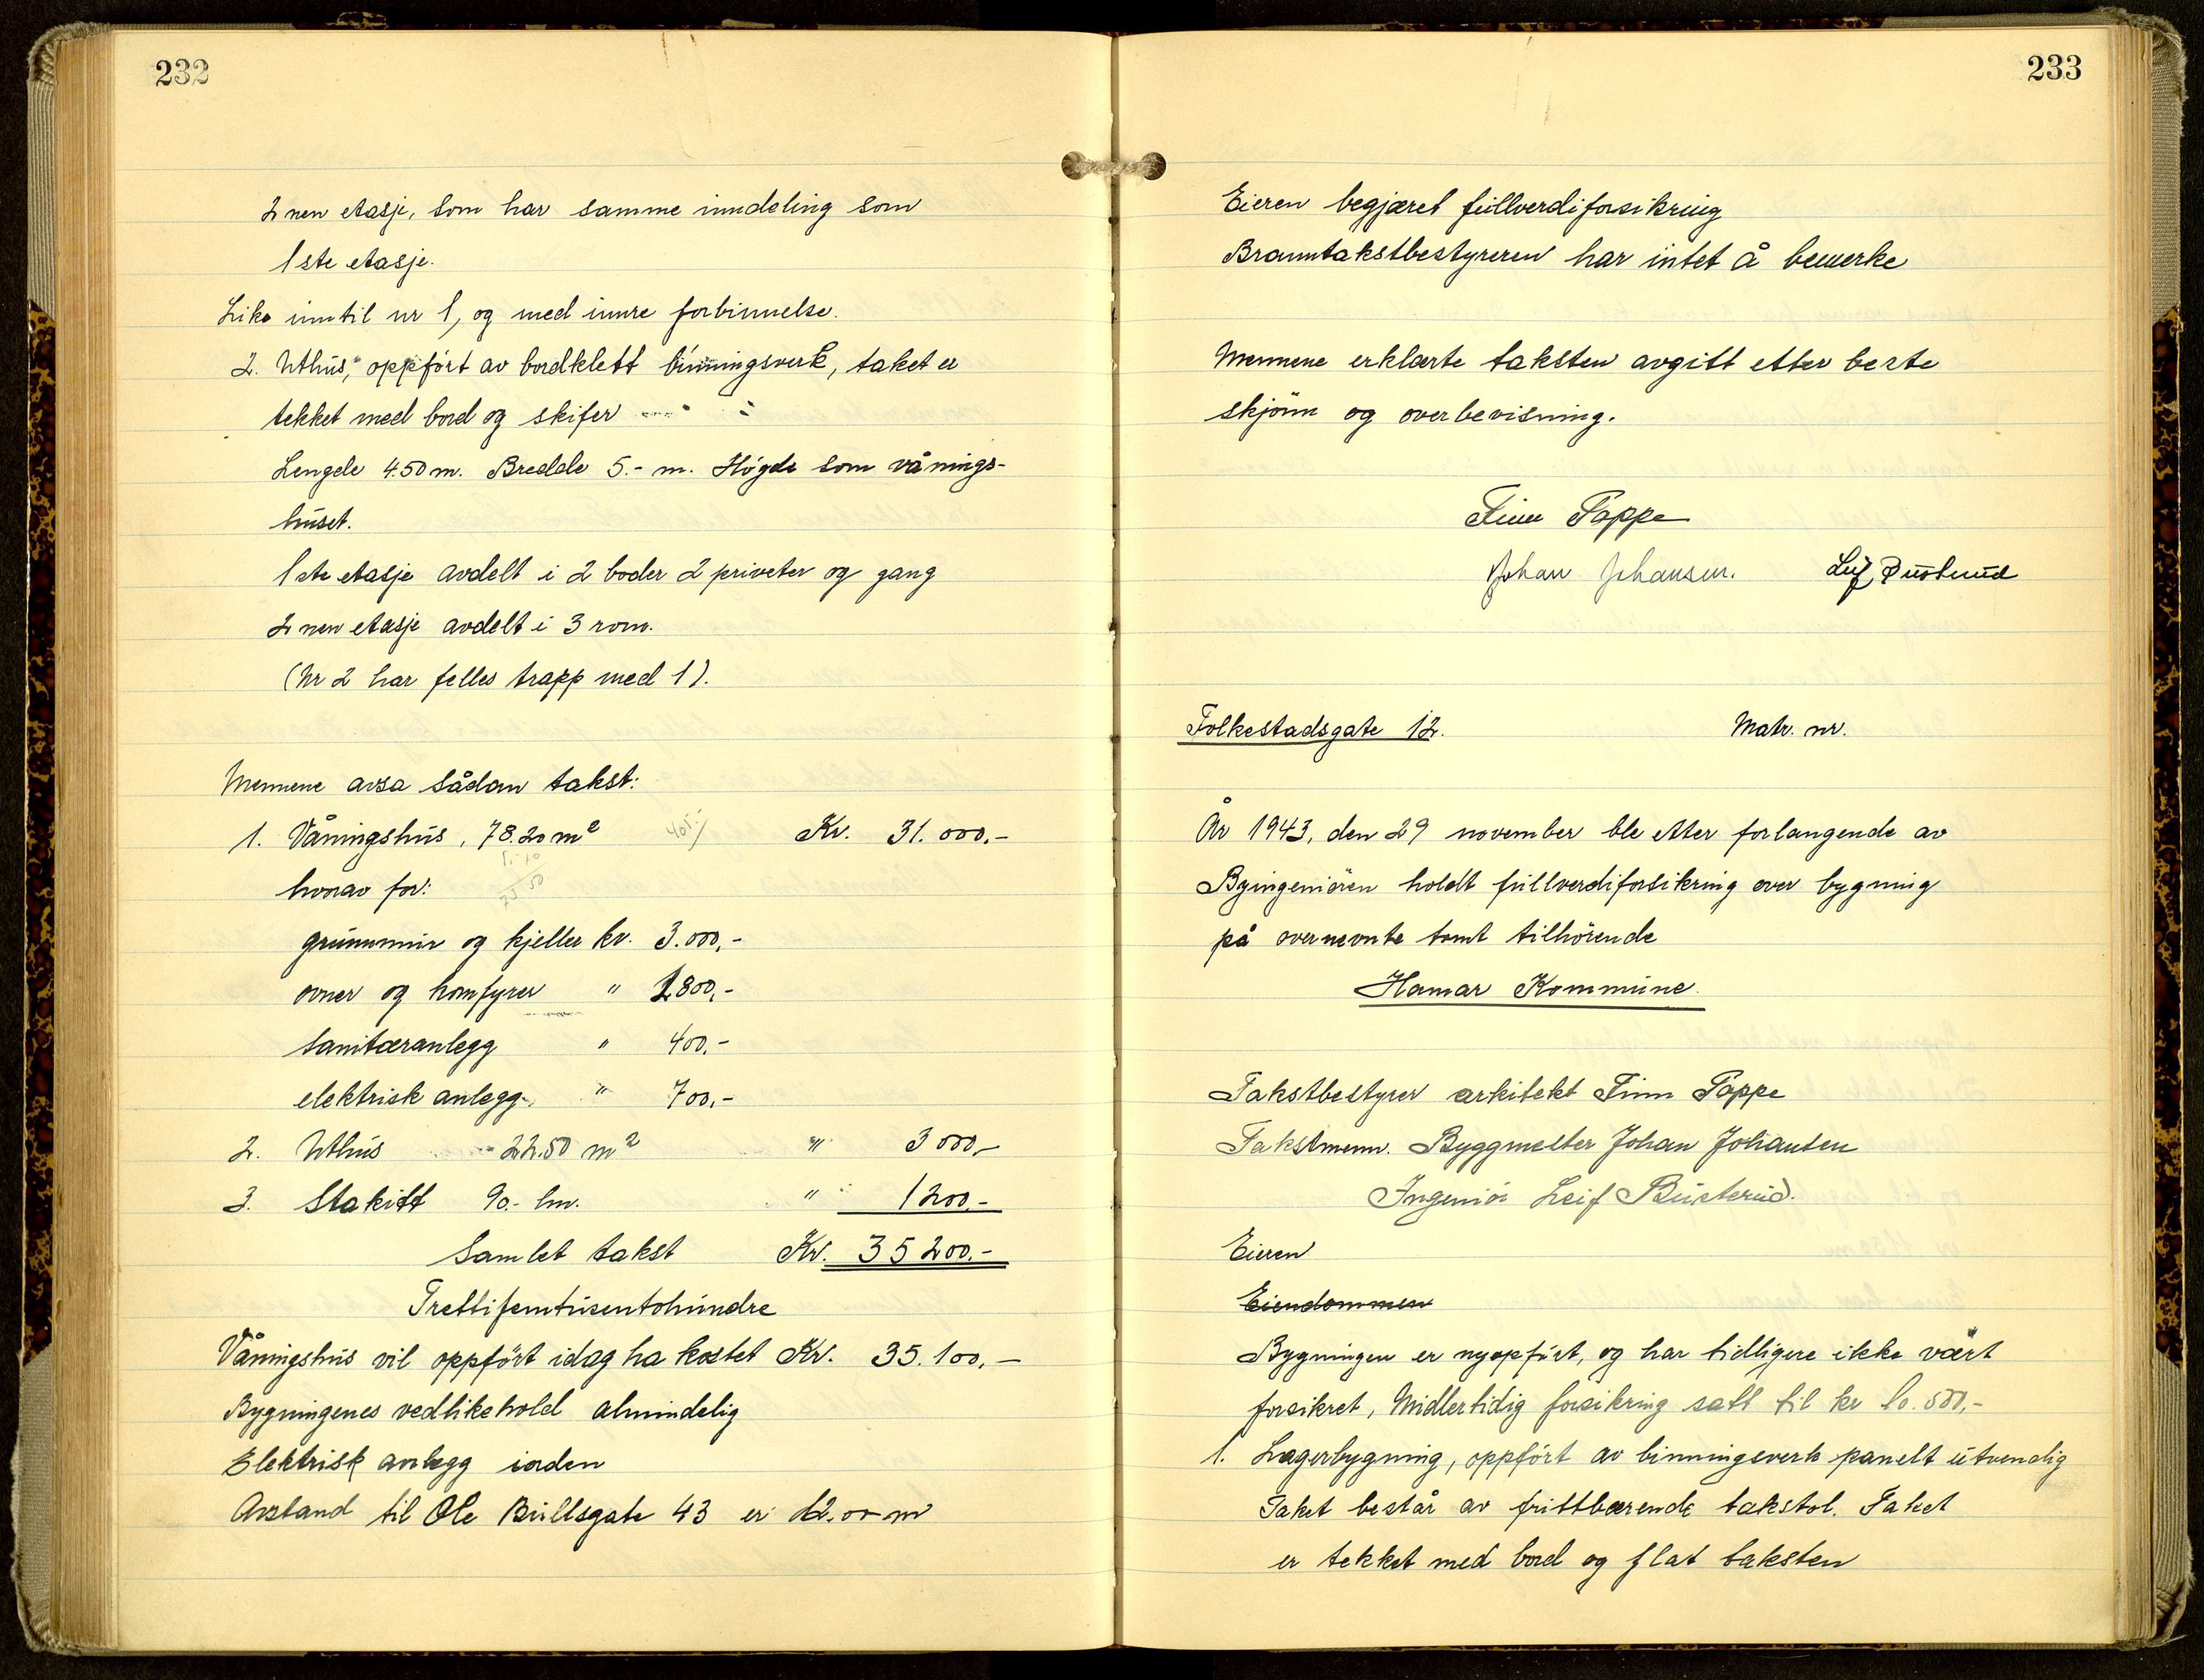 232
2 nen etasje, som har samme inndeling som
1ste etasje.
Like inntil nr 1, og med innre forbinnelse.
2. Uthus, oppført av bordklett binningsverk, taket er
tekket med bord og skifer
Lengde 4.50 m. Bredde 5.- m. Høgde som vånings-
huset.
1ste etasje avdelt i 2 boder 2 priveter og gang
2 nen etasje avdelt i 3 rom.
(Nr 2 har felles trapp med 1).
Mennene avsa sådan takst:
1. Våningshus, 78.20 m² Kr. 31.000.-
hvorav for:
grunnmur og kjeller kr. 3.000,-
ovner og komfyrer " 1800,-
sanitæranlegg " 400.-
elektrisk anlegg " 700,-
2. Uthus 22.50 m² " 3000,-
3. Stakitt 90.- lm. " 1200.-
Samlet takst Kr. 35200.-
Trettifemtusentohundre
Våningshus vil oppført idag ha kostet Kr. 35.100,-
Bygningenes vedlikehold almindelig
Elektrisk anlegg iorden
Avstand til Ole Bullsgate 43 er 12.00 m
233
Eieren begjæret fullverdiforsikring
Branntakstbestyreren har intet å bemerke
Mennene erklærte taksten avgitt etter beste
skjønn og overbevisning.
Finn Poppe
Johan Johansen. Leif Busterud
Folkestadsgate 12. Matr. nr.
År 1943, den 29 november ble etter forlangende av
Byingeniøren holdt fullverdiforsikring over bygning
på overnevnte tomt tilhörende
Hamar Kommune.
Takstbestyrer arkitekt Finn Poppe
Takstmenn. Byggmester Johan Johansen
Ingeniör Leif Busterud.
Eieren
Eiendommen
Bygningen er nyoppført, og har tidligere ikke vært
forsikret, Midlertidig forsikring satt til kr 10.500,-
1. Lagerbygning, oppfört av binningsverk panelt utvendig
Taket består av frittbærende takstol. Taket
er tekket med bord og flat taksten